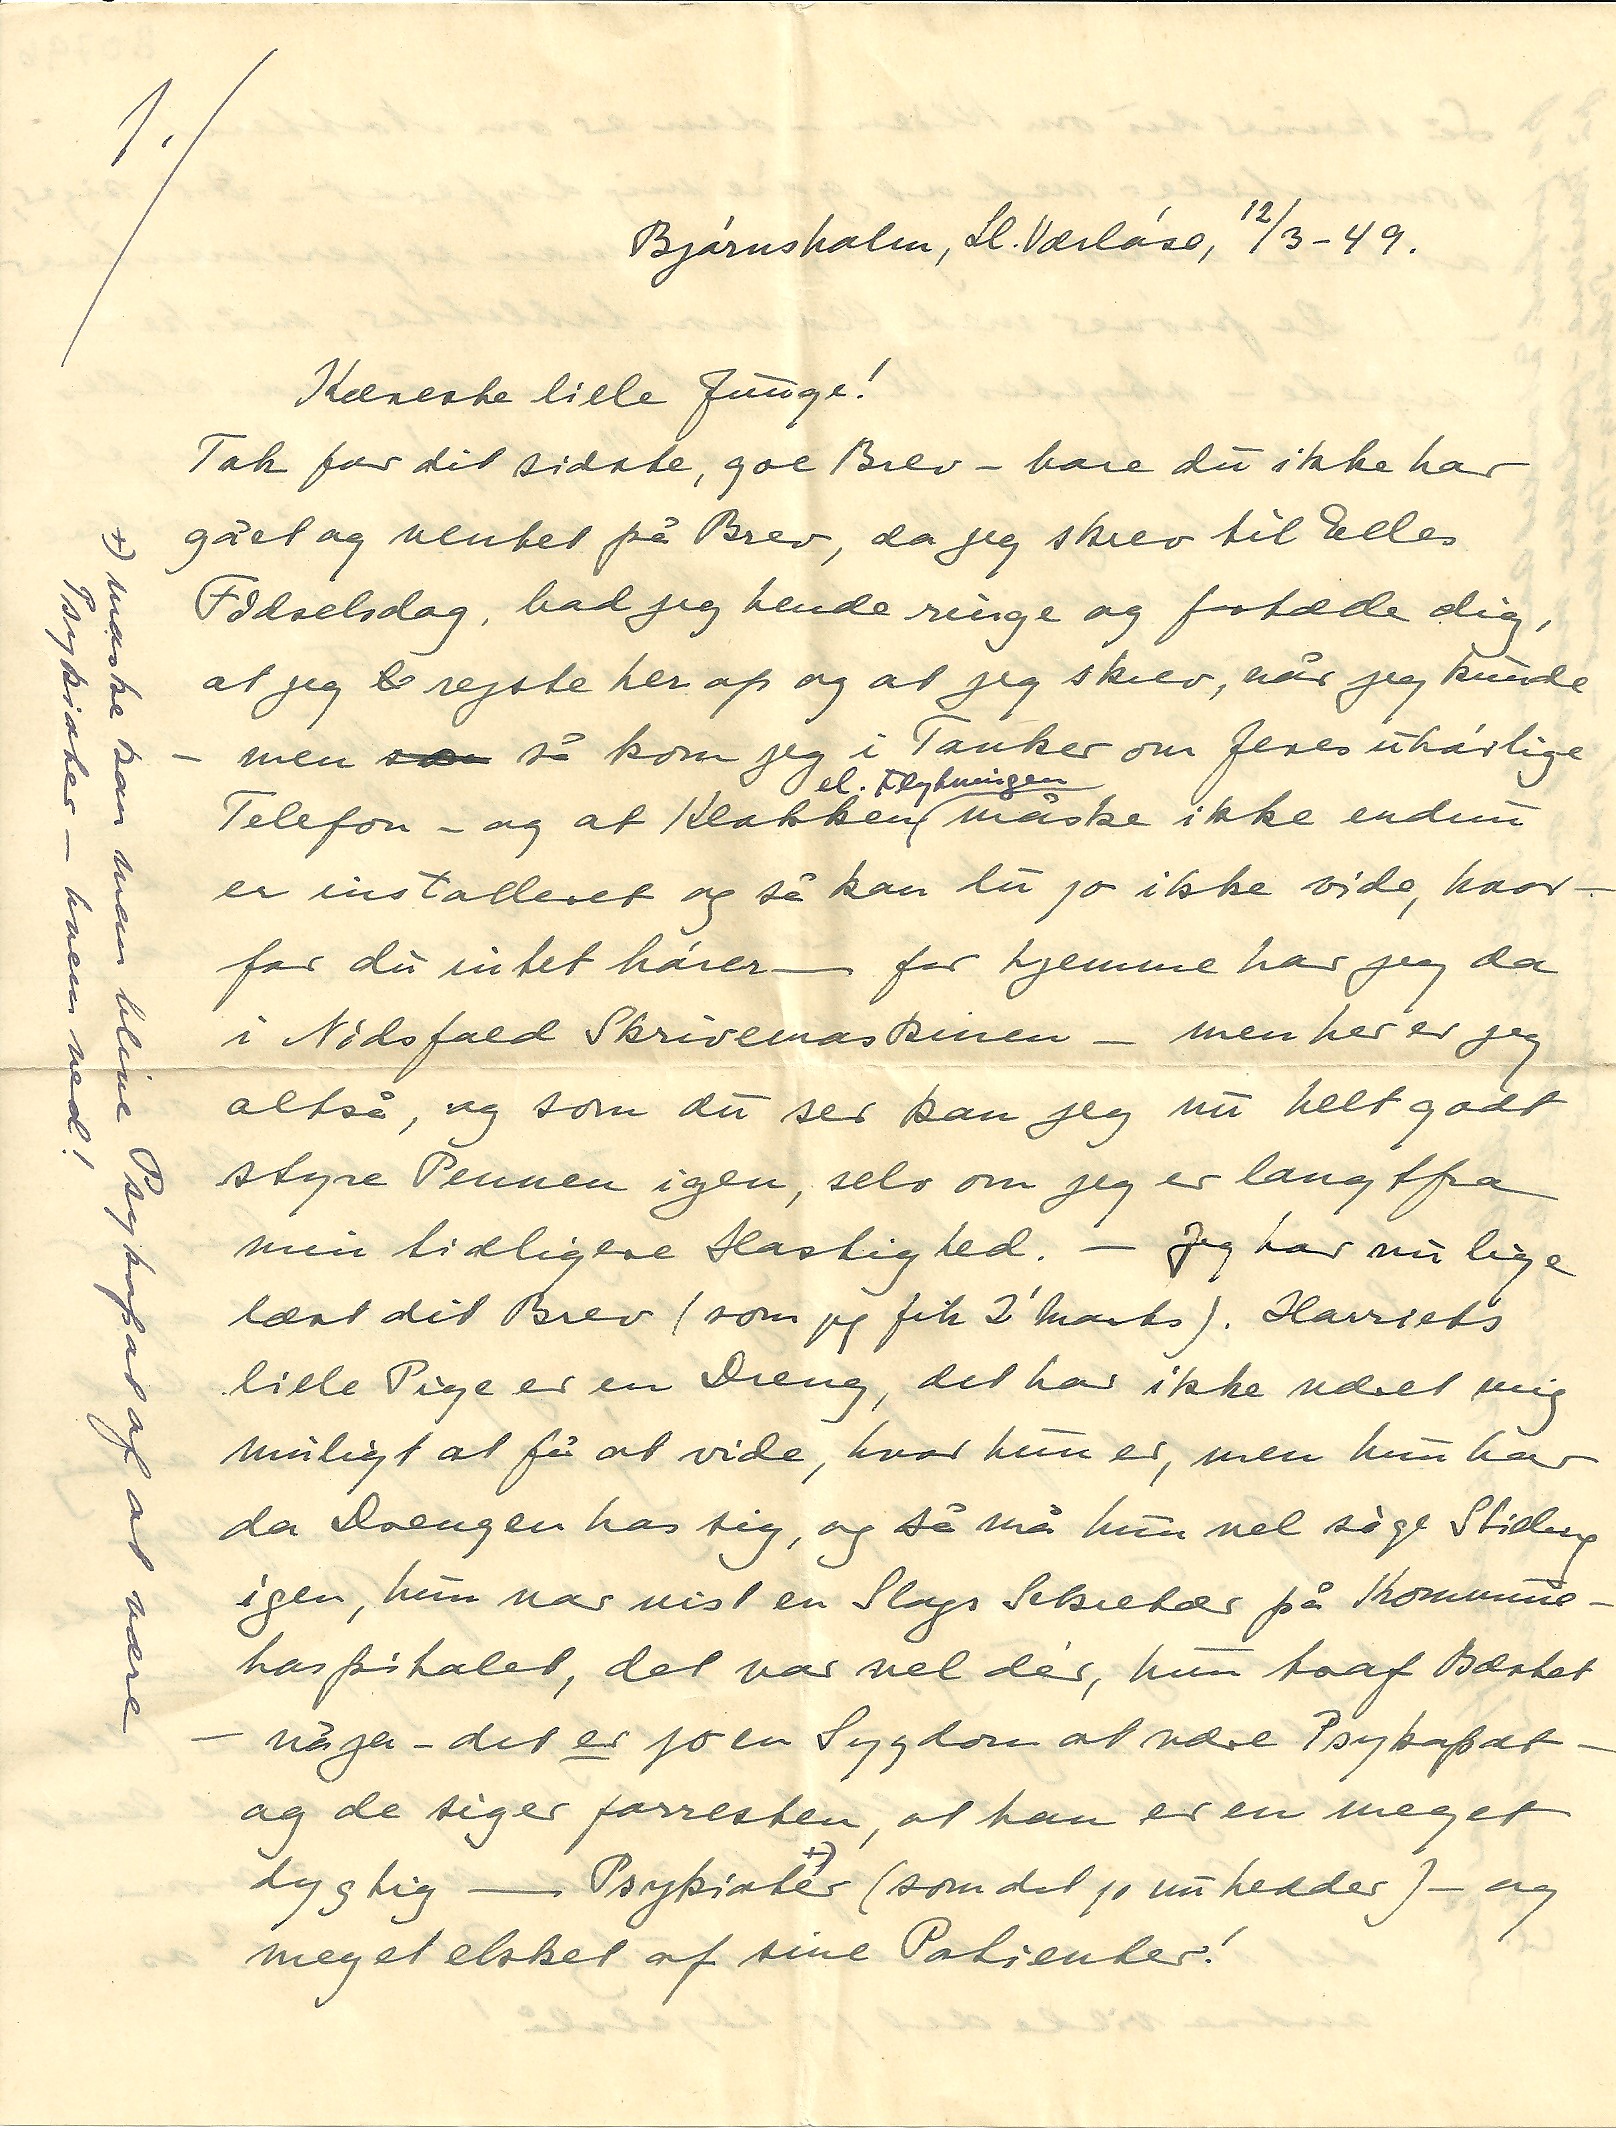 1./
Bjørnsholm, Ll. Værløse, 12/3-49.
Kæreste lille Junge!
Tak for dit sidste, goe Brev – bare du ikke har
gået og ventet på Brev, da jeg skrev til Elles
Fødselsdag, bad jeg hende ringe og fortælle dig,
at jeg rejste her op og at jeg skrev, når jeg kunde
– men så kom jeg i Tanker om Jeres uhørlige
el. Flytningen
Telefon – og at Klokken måske ikke endnu
er installeret og så kan du jo ikke vide, hvor-
for du intet hører — for hjemme har jeg da
i Nødsfald Skrivemaskinen – men her er jeg
altså, og som du ser kan jeg nu helt godt
styre Pennen igen, selv om jeg er langtfra
min tidligere Hastighed. – Jeg har nu lige
læst dit Brev (som jeg fik 2' Marts). Harriets
lille Pige er en Dreng, det har ikke været mig
muligt at få at vide, hvor hun er, men hun har
da Drengen hos sig, og så må hun vel søge Stilling
igen, hun var vist en Slags Sekretær på Kommune-
hospitalet, det var vel dér, hun traf Bæstet
– nåja – det er jo en Sygdom at være Psykopat –
og de siger forresten, at han er en meget
dygtig — Psykiater +) (som det jo nu hedder) – og
meget elsket af sine Patienter!
+) måske kan man blive Psykopat af at være
Psykiater – hvem ved!